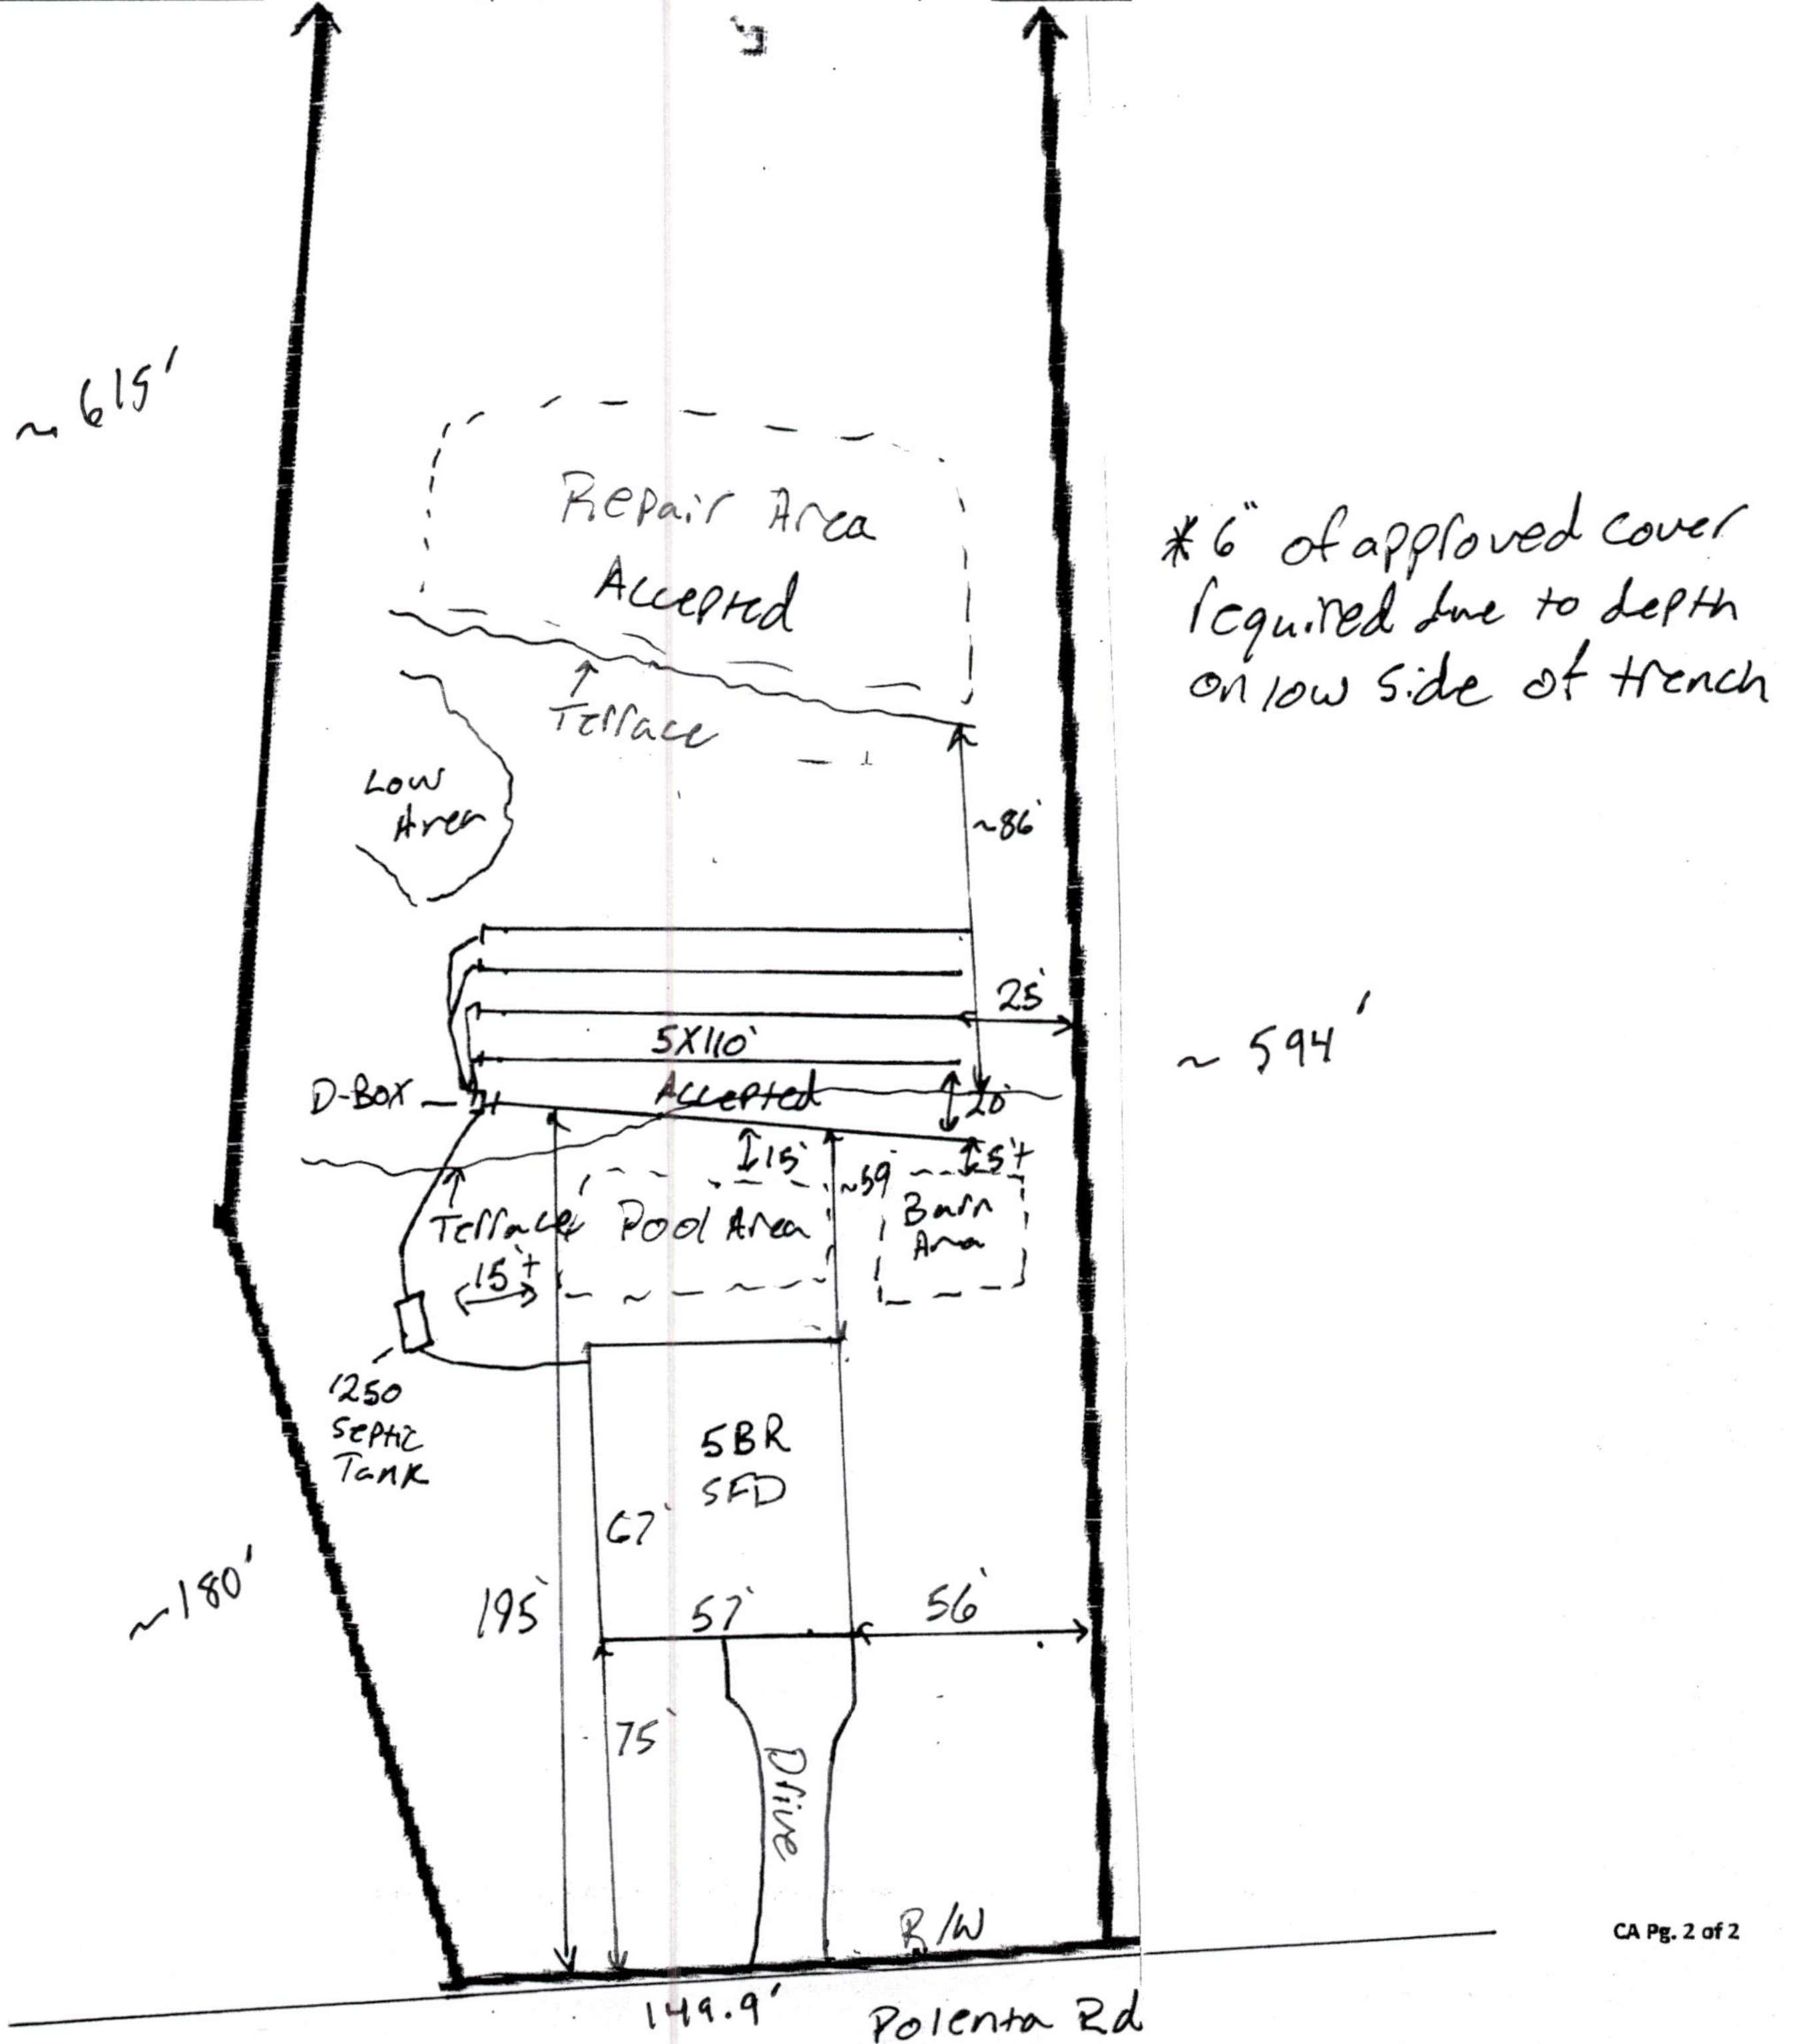 ~ 615'
Repair Area
Accepted
* 6" of approved cover
required due to depth
on low side of trench
Terrace
Low
Area
~86'
25'
5X110'
~ 594'
D-Box
Accepted
20'
15'
~59'
5'+
Terrace
Pool Area
Barn
Area
15'+
1250
Septic
Tank
5BR
SFD
67'
~180'
195'
57'
56'
75'
Drive
R/W
CA Pg. 2 of 2
149.9'
Polenta Rd